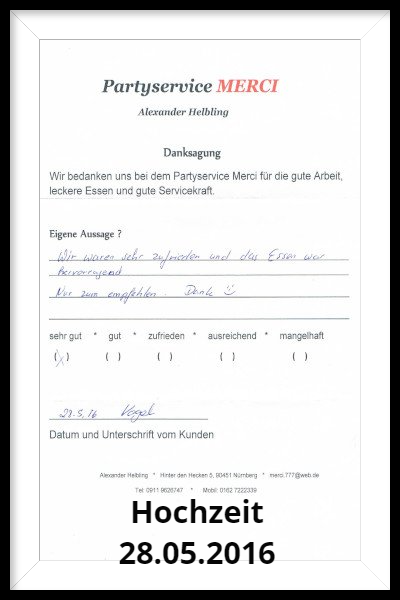 Partyservice MERCI
Alexander Helbling
Danksagung
Wir bedanken uns bei dem Partyservice Merci für die gute Arbeit,
leckere Essen und gute Servicekraft.
Eigene Aussage ?
Wir waren sehr zufrieden und das Essen war
hervorragend
Nur zum empfehlen. Danke ☺
sehr gut * gut * zufrieden * ausreichend * mangelhaft
(x) ( ) ( ) ( ) ( )
28.5.16 Vogel
Datum und Unterschrift vom Kunden
Alexander Helbling * Hinter den Hecken 5, 90451 Nürnberg * merci.777@web.de
Tel: 0911 9626747 * Mobil: 0162 7222339
Hochzeit
28.05.2016